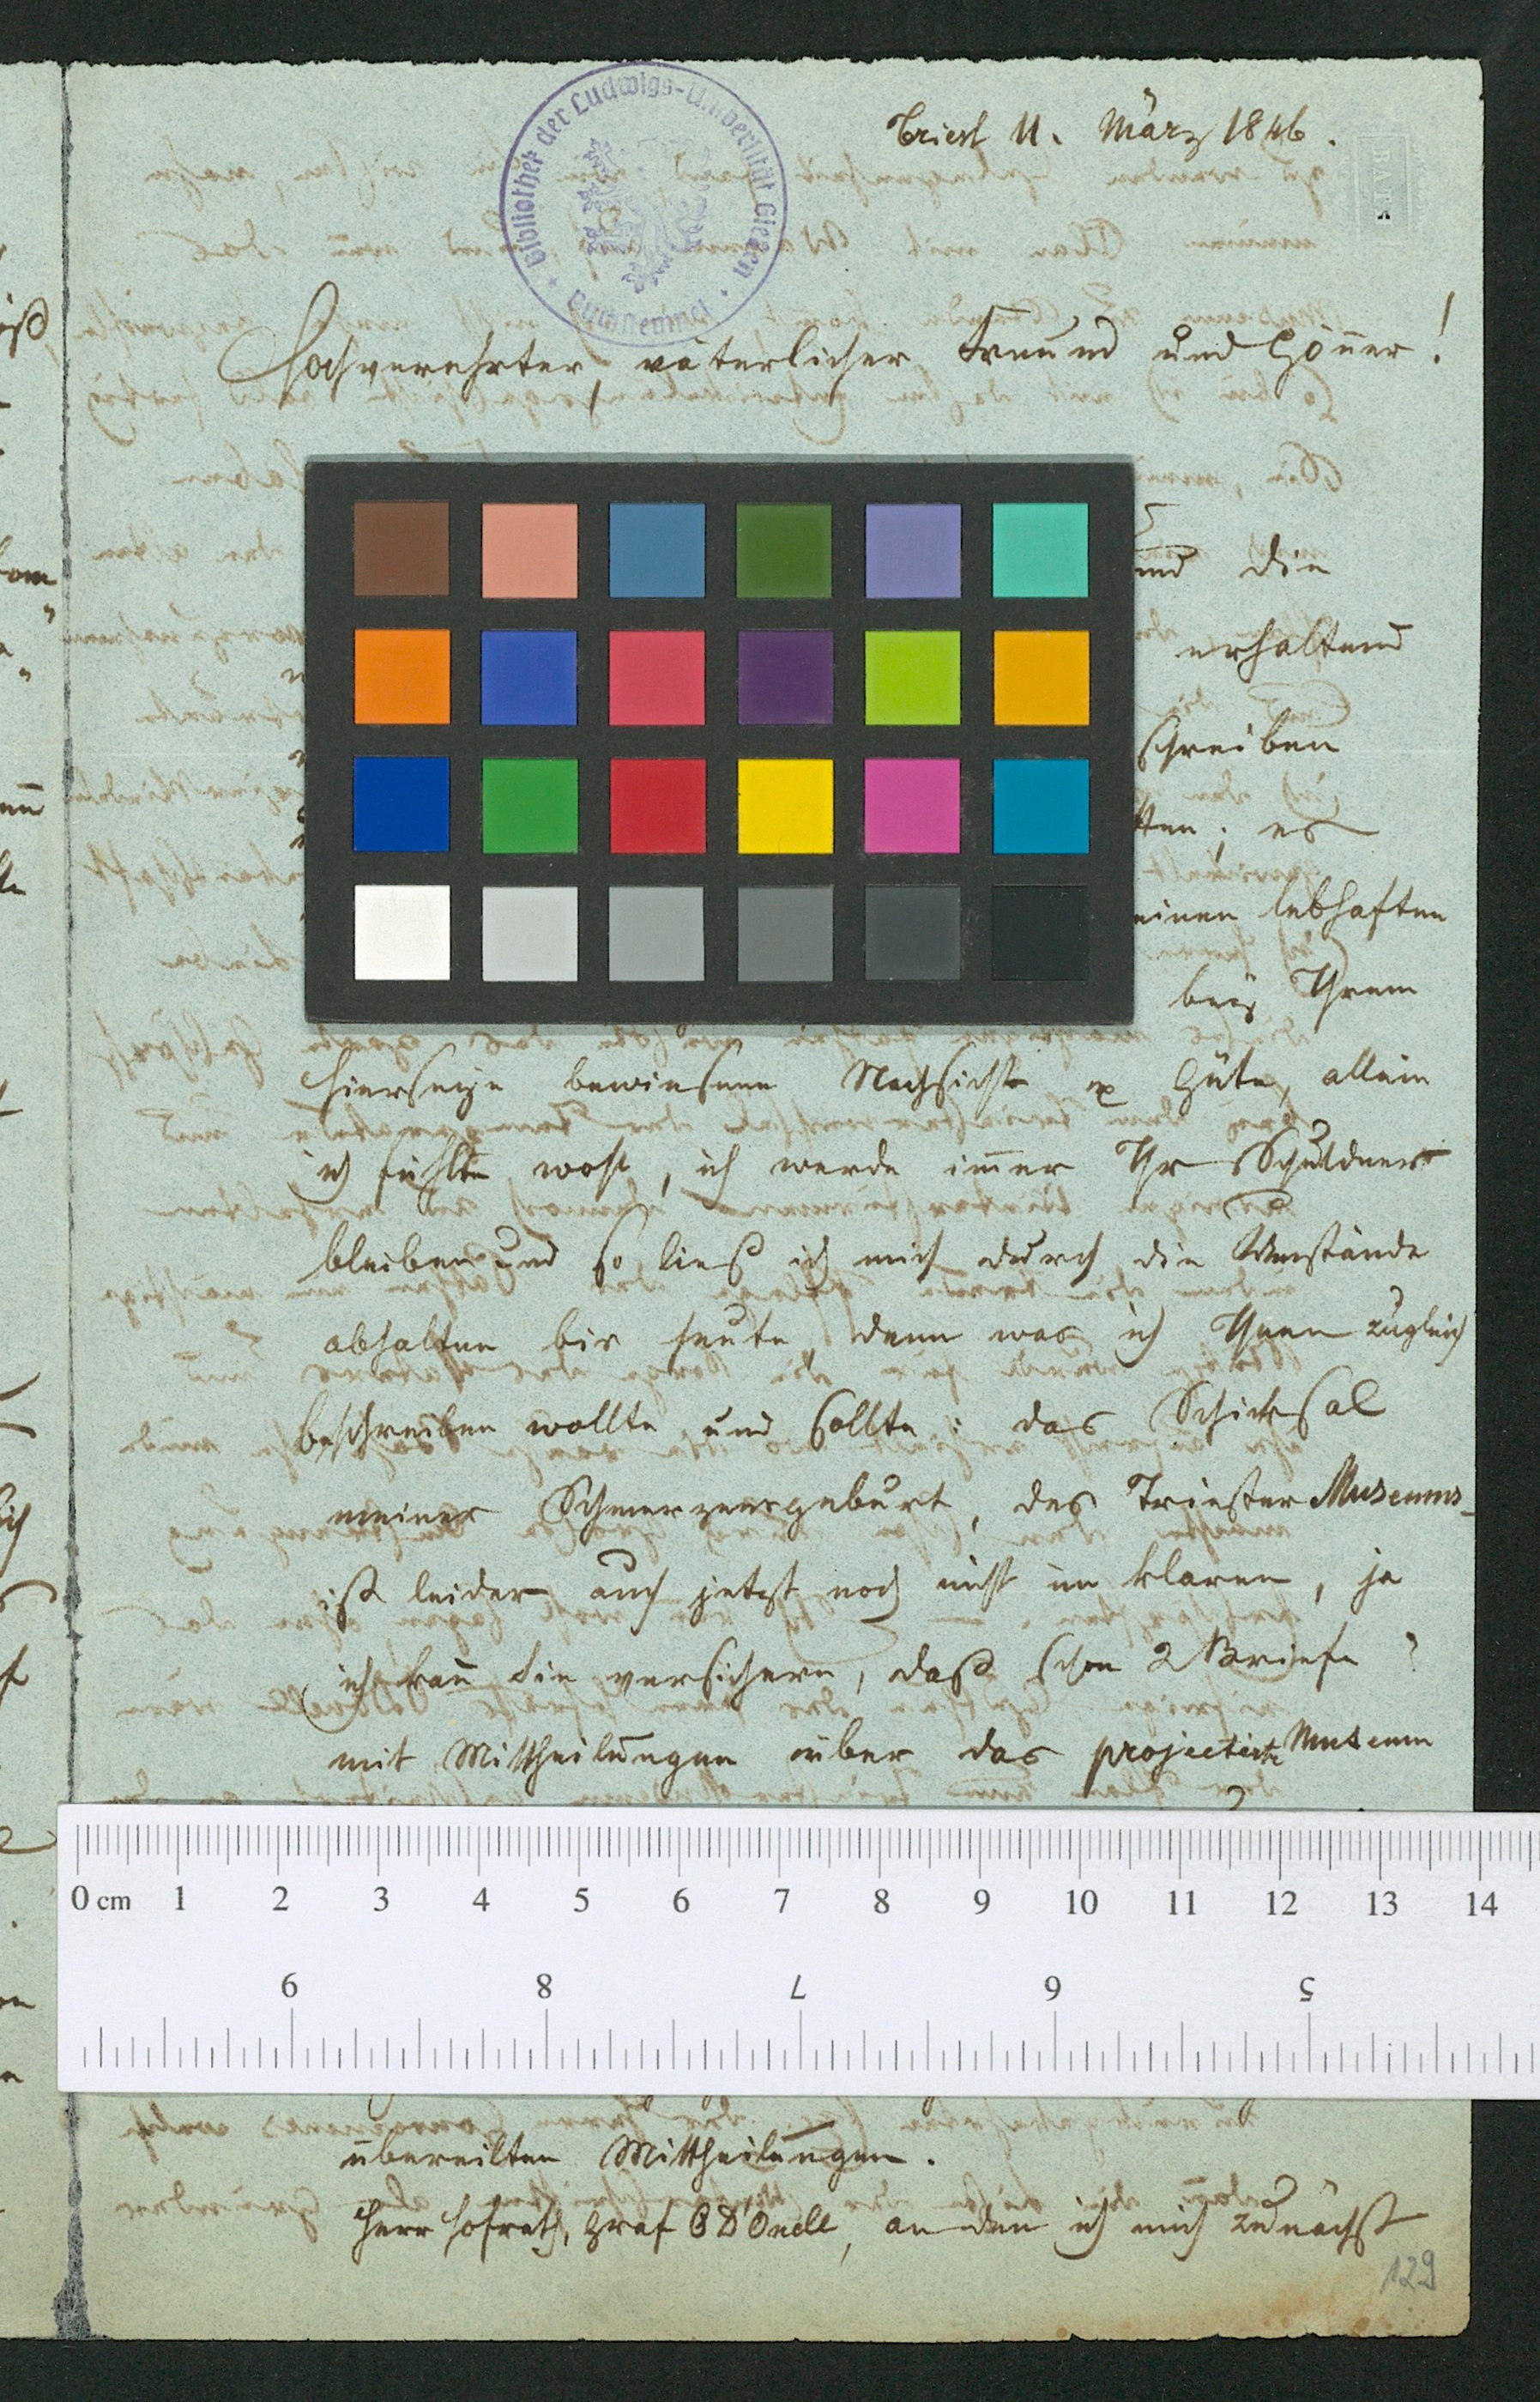 Triest 11. März 1846.
Bibliothek der Ludwigs-Universität Giessen
Hochverehrter, väterlicher Freund und Gönner!
und die
erhaltend
schreiben
tten; es
einen lebhaften
bey Ihrem
Hierseyn bewiesene Nachsicht & Güte, allein
ich fühlte wohl, ich werde im̅er Ihr Schuldner
bleiben und so ließ ich mich durch die Umstände
abhalten bis heute, denn was ich Ihnen zugleich
beschreiben wollte und sollte: das Schicksal
meiner Schmerzensgeburt, des Triester Museums
ist leider auch jetzt noch nicht im klaren, ja
ich kan̅ Sie versichern, daß schon 2 Briefe
mit Mittheilungen über das projectirte Museum
0 cm 1 2 3 4 5 6 7 8 9 10 11 12 13 14
9 8 7 6 5
übereilten Mittheilungen.
Herr Hofrath, Graf O'Donell, an den ich mich zunächst
129